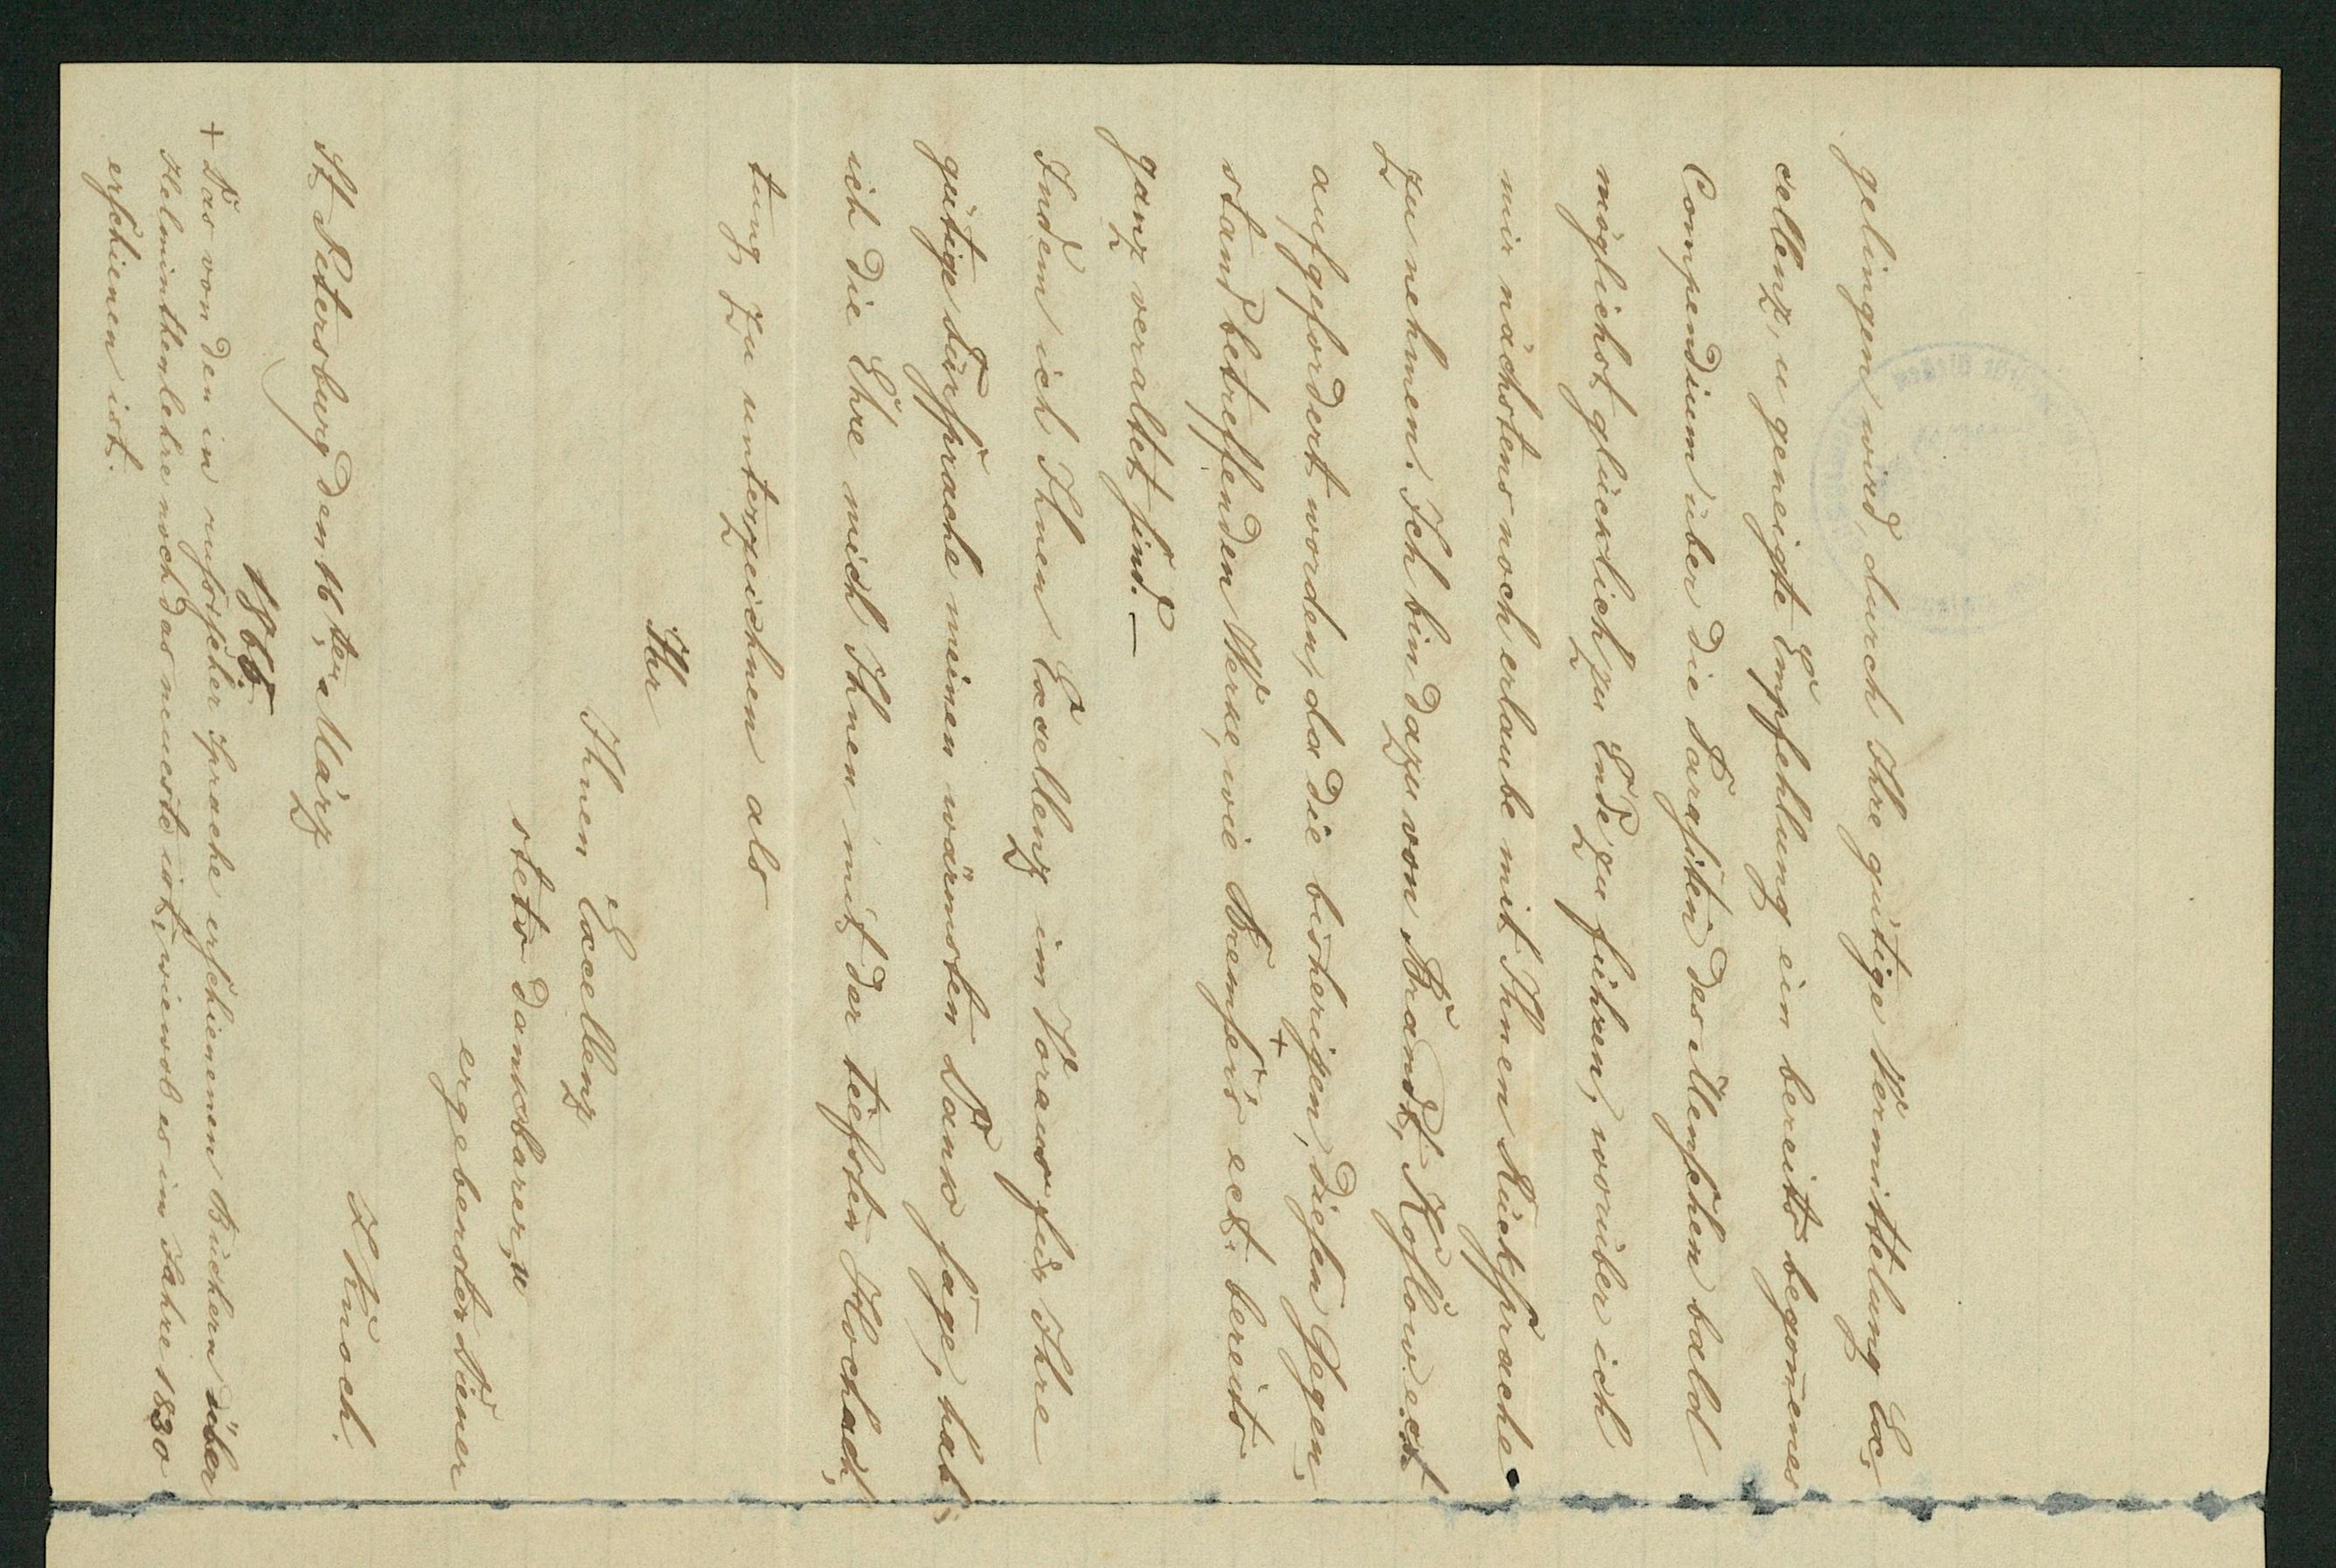 gelingen wird, durch Ihre gütige Vermittelung Ex„
cellenz, u geneigte Empfehlung ein bereits begoñenes
Compendium über die Parasiten des Menschen bald
möglichst glücklich zu Ende zu führen, worüber ich
mir nächstens noch erlaube mit Ihnen Rücksprache
zu nehmen. Ich bin dazu von Brandt, Koslow ect
aufgefordert worden, da die bisherigen, diesen Gegen„
stand betreffenden Werke, wie Bremser's + ect. bereits
ganz veraltet sind. —
Indem ich Ihnen Excellenz im Voraus für Ihre
gütige Fürsprache meinen wärmsten Dank sage, hab„
ich die Ehre mich Ihnen mit der tiefsten Hochach„
tung zu unterzeichnen als
Ihr
Ihnen Excellenz
stets dankbarer, u
ergebenster Diener
J Knoch.
St Petersburg den 16ten März
1865
+ Das von den in russischer Sprache erschienenen Büchern über
Helminthenlehre noch das neueste ist, wiewol es im Jahre 1830
erschienen ist.